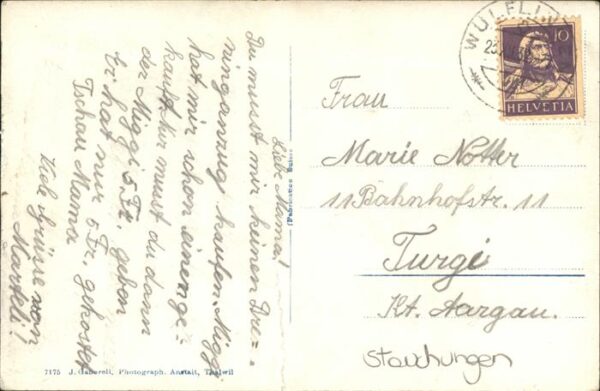 Liebe Mama!
Du must mir keinen Dre=
ninganzug kaufen. Miggi
hat mir schon einen ge=
kauft. Nur must du dann
der Miggi 5 Fr. geben
Er hat nur 5 Fr. gekostet
Tschau Mama
Viele Grüsse von
Markeli!
(Fabrication Suisse)
7175 J. Gaberell, Photograph. Anstalt, Thalwil
WÜLFLIN
10
HELVETIA
Frau
Marie Notter
11 Bahnhofstr. 11
Turgi
Kt. Aargau.
Stauchungen